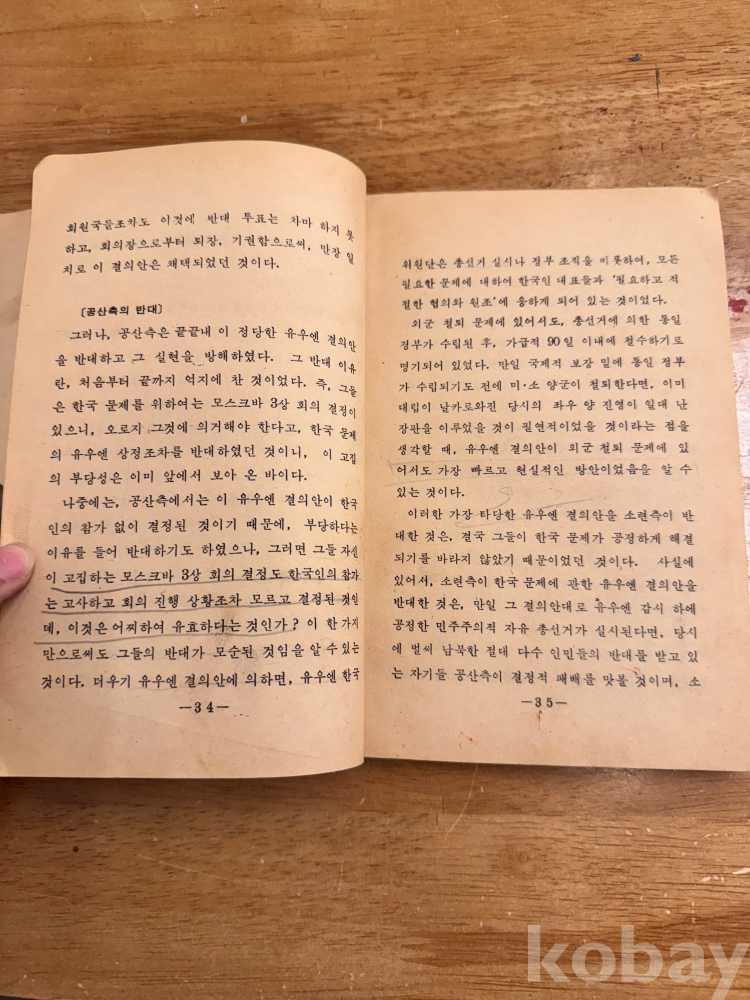 회원국들조차도 이것에 반대 투표는 차마 하지 못
하고, 회의장으로부터 퇴장, 기권함으로써, 만장 일
치로 이 결의안은 채택되었던 것이다.
[공산측의 반대]
그러나, 공산측은 끝끝내 이 정당한 유우엔 결의안
을 반대하고 그 실현을 방해하였다. 그 반대 이유
란, 처음부터 끝까지 억지에 찬 것이었다. 즉, 그들
은 한국 문제를 위하여는 모스크바 3상 회의 결정이
있으니, 오로지 그것에 의거해야 한다고, 한국 문제
의 유우엔 상정조차를 반대하였던 것이니, 이 고집
의 부당성은 이미 앞에서 보아 온 바이다.
나중에는, 공산측에서는 이 유우엔 결의안이 한국
인의 참가 없이 결정된 것이기 때문에, 부당하다는
이유를 들어 반대하기도 하였으나, 그러면 그들 자신
이 고집하는 모스크바 3상 회의 결정도 한국인의 참가
는 고사하고 회의 진행 상황조차 모르고 결정된 것인
데, 이것은 어찌하여 유효하다는 것인가? 이 한 가지
만으로써도 그들의 반대가 모순된 것임을 알 수 있는
것이다. 더우기 유우엔 결의안에 의하면, 유우엔 한국
—34—
위원단은 총선거 실시나 정부 조직을 비롯하여, 모든
필요한 문제에 대하여 한국인 대표들과 '필요하고 적
절한 협의와 원조'에 응하게 되어 있는 것이었다.
외군 철퇴 문제에 있어서도, 총선거에 의한 통일
정부가 수립된 후, 가급적 90일 이내에 철수하기로
명기되어 있었다. 만일 국제적 보장 밑에 통일 정부
가 수립되기도 전에 미·소 양군이 철퇴한다면, 이미
대립이 날카로와진 당시의 좌우 양 진영이 일대 난
장판을 이루었을 것이 필연적이었을 것이라는 점을
생각할 때, 유우엔 결의안이 외군 철퇴 문제에 있
어서도 가장 빠르고 현실적인 방안이었음을 알 수
있는 것이다.
이러한 가장 타당한 유우엔 결의안을 소련측이 반
대한 것은, 결국 그들이 한국 문제가 공정하게 해결
되기를 바라지 않았기 때문이었던 것이다. 사실에
있어서, 소련측이 한국 문제에 관한 유우엔 결의안을
반대한 것은, 만일 그 결의안대로 유우엔 감시 하에
공정한 민주주의적 자유 총선거가 실시된다면, 당시
에 벌써 남북한 절대 다수 인민들의 반대를 받고 있
는 자기들 공산측이 결정적 패배를 맛볼 것이며, 소
—35—
kobay